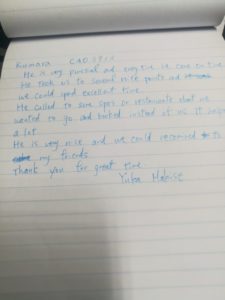 Kumara
He is very punctual and everytime he came on time
He took us to several nice points and
we could spend excellent time.
He called to some spas or restaurants that we
wanted to go and booked instead of us. It helps
a lot.
He is very nice and we could recommend to
my friends
Thank you for great time.
Yuka